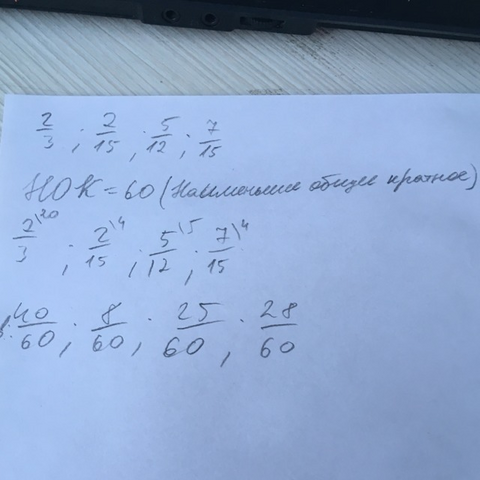 2/3 ; 2/15 ; 5/12 ; 7/15
НОК = 60 (Наименьшее общее кратное)
2\20/3 ; 2\4/15 ; 5\5/12 ; 7\4/15
40/60 ; 8/60 ; 25/60 ; 28/60